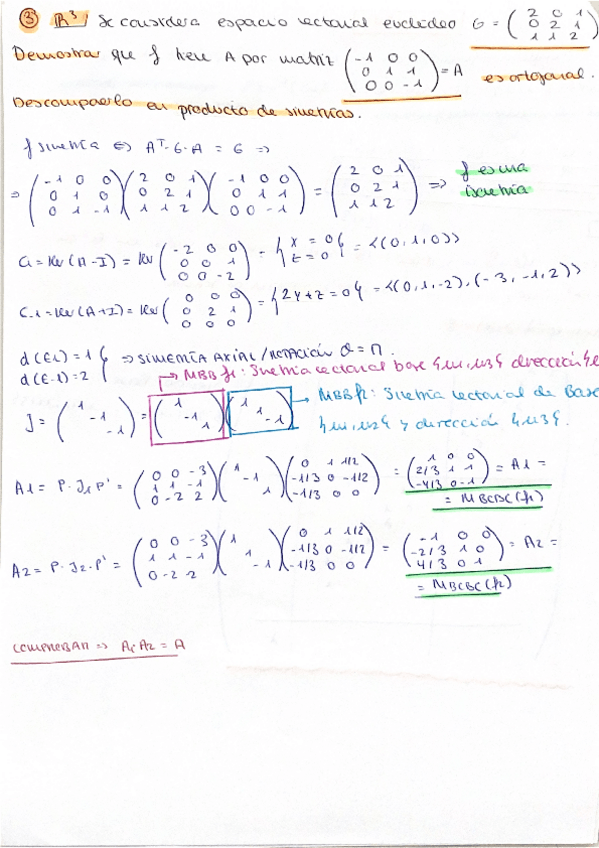 ③ R³ Se considera espacio vectorial euclídeo G = (2 0 1 / 0 2 1 / 1 1 2)
Demostrar que f tiene A por matriz (-1 0 0 / 0 1 1 / 0 0 -1) = A es ortogonal.
Descomponerlo en producto de simetrías.
f simetría ⇔ Aᵀ·G·A = G ⇒
⇒ (-1 0 0 / 0 1 0 / 0 1 -1) (2 0 1 / 0 2 1 / 1 1 2) (-1 0 0 / 0 1 1 / 0 0 -1) = (2 0 1 / 0 2 1 / 1 1 2) ⇒ f es una isometría
C1 = Ker(A-I) = Ker (-2 0 0 / 0 0 1 / 0 0 -2) = {x = 0 / z = 0} = <(0,1,0)>
C-1 = Ker(A+I) = Ker (0 0 0 / 0 2 1 / 0 0 0) = {2y+z = 0} = <(0,1,-2), (-3,-1,2)>
d(E1) = 1
d(E-1) = 2 } ⇒ SIMETRÍA AXIAL/ROTACIÓN θ = π.
→ MBB f1: Simetría vectorial base {u1, u3} dirección
J = (1 / -1 / -1) = (1 / -1 / 1) (1 / 1 / -1) → MBB f2: Simetría vectorial de Base
{u1, u2} y dirección {u3}.
A1 = P·J1·P' = (0 0 -3 / 1 1 -1 / 0 -2 2) (1 / -1 / 1) (0 1 1/2 / -1/3 0 -1/2 / -1/3 0 0) = (1 0 0 / 2/3 1 1 / -4/3 0 -1) = A1 =
= MBCBC(f1)
A2 = P·J2·P' = (0 0 -3 / 1 1 -1 / 0 -2 2) (1 / 1 / -1) (0 1 1/2 / -1/3 0 -1/2 / -1/3 0 0) = (-1 0 0 / -2/3 1 0 / 4/3 0 1) = A2 =
= MBCBC(f2)
COMPROBAR ⇒ A1 A2 = A